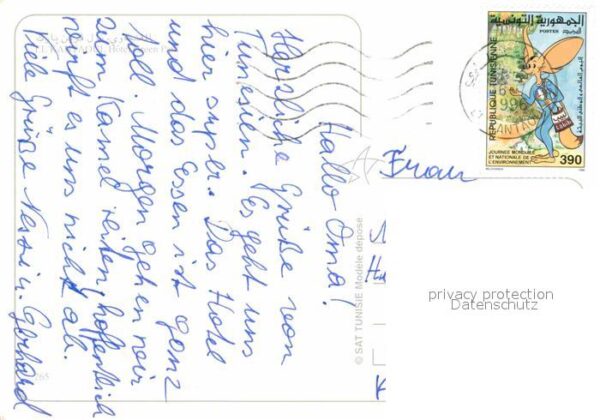 Hallo Oma!
Herzliche Grüße von
Tunesien. Es geht uns
hier super. Das Hotel
und das Essen ist ganz
toll. Morgen gehen wir
zum Kamel reiten, hoffentlich
wirft es uns nicht ab.
Viele Grüße Nessi u. Gerhard
Frau
© SAT TUNISIE Modèle déposé
الجمهورية التونسية
POSTES البريد
REPUBLIQUE TUNISIENNE
JOURNEE MONDIALE
ET NATIONALE DE
L'ENVIRONNEMENT
390
1996
privacy protection
Datenschutz
265